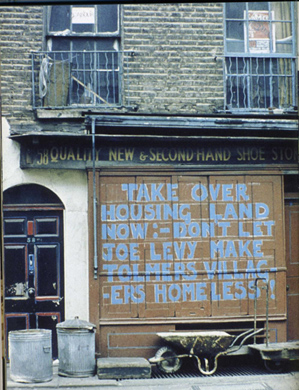 58 QUALITY NEW & SECOND-HAND SHOE STO
TAKE OVER
HOUSING LAND
NOW :- DON'T LET
JOE LEVY MAKE
TOLMERS VILLAG
-ERS HOMELESS!
58